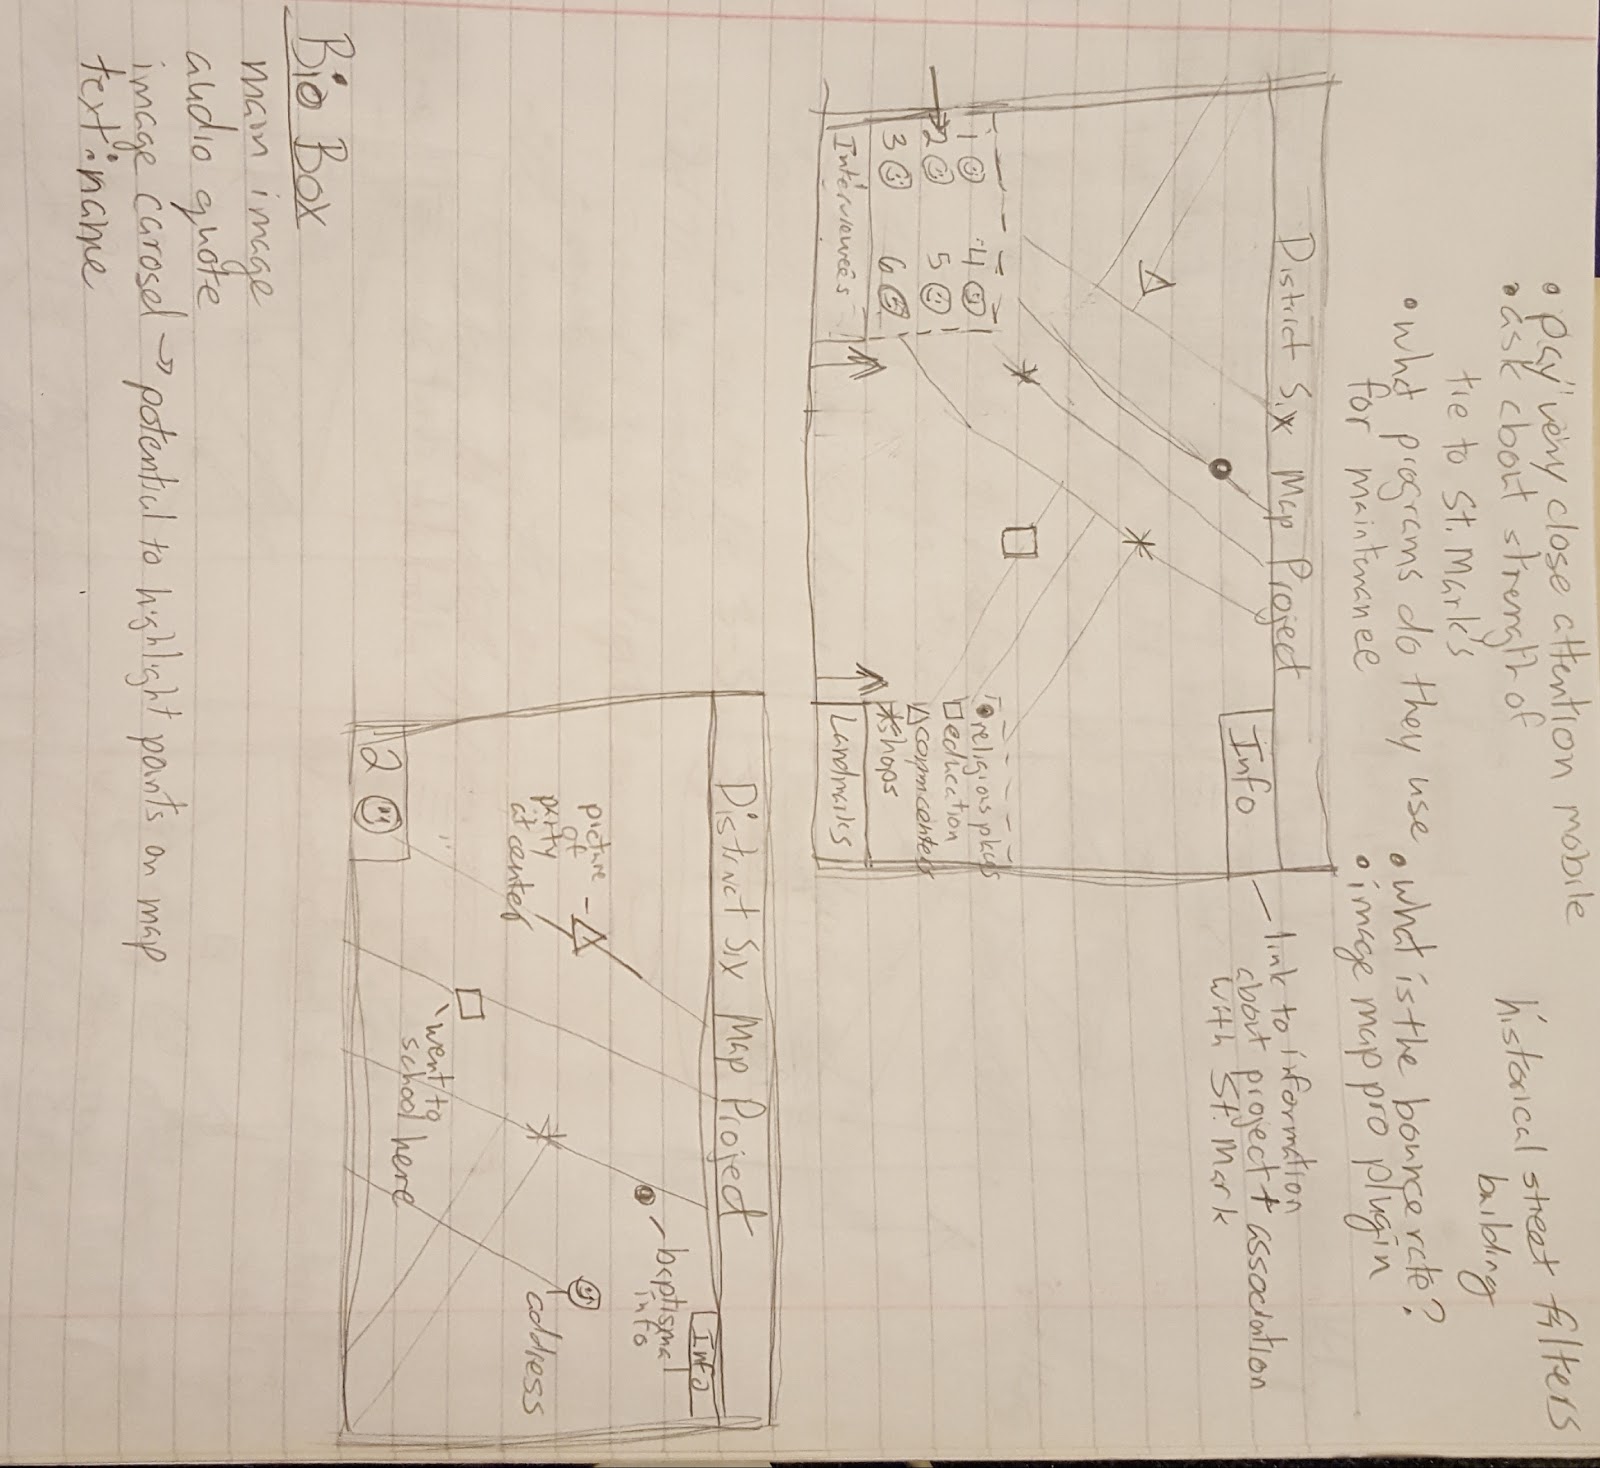 • pay very close attention mobile
• ask about strength of
tie to St. Mark's
• what programs do they use
for maintenance
historical street filters
building
• what is the bounce rate?
• image map pro plugin
District Six Map Project
Info
link to information
about project + association
with St. Mark
1 4
2 5
3 6
Interviewees
religious places
education
comm centers
shops
Landmarks
District Six Map Project
Info
baptismal
info
picture
of
party
at center
address
went to
school here
2
Bio Box
main image
audio quote
image carosel → potential to highlight points on map
text: name